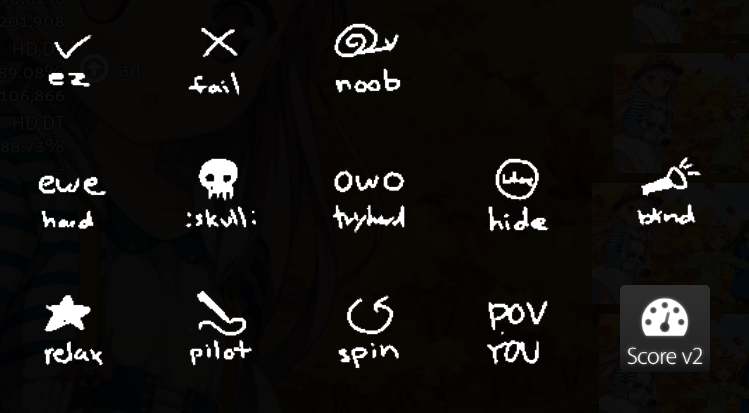 201,908
HD,DT
89.08%
3d
106,866
HD,DT
88.73%
ez
fail
noob
ewe
hard
:skull:
owo
tryhard
hide
blind
relax
pilot
spin
POV
YOU
Score v2